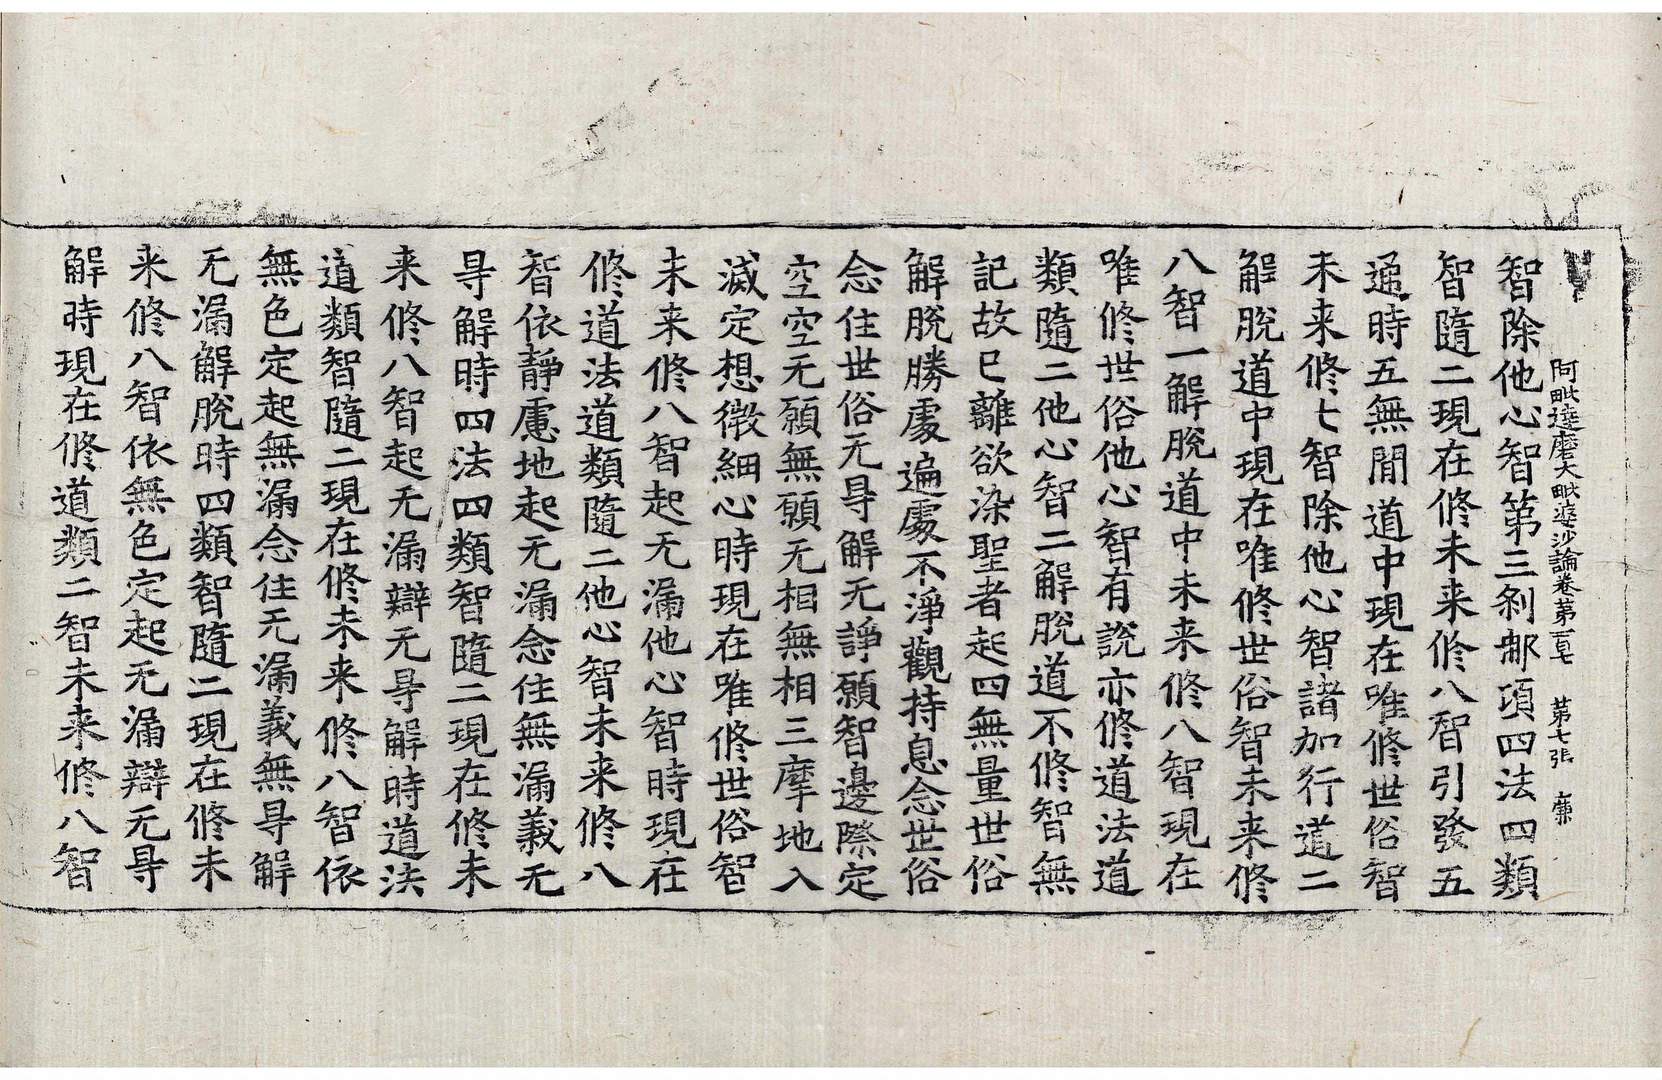 阿毗達磨大毗婆沙論卷第一百七　第七張　廉
智除他心智第三刹那項四法四類
智隨二現在修未来修八智引發五
通時五無間道中現在唯修世俗智
未来修七智除他心智諸加行道二
解脫道中現在唯修世俗智未来修
八智一解脫道中未来修八智現在
唯修世俗他心智有說亦修道法道
類隨二他心智二解脫道不修智無
記故已離欲染聖者起四無量世俗
解脫勝處遍處不淨觀持息念世俗
念住世俗无㝵解无諍願智邊際定
空空无願無願无相無相三摩地入
滅定想微細心時現在唯修世俗智
未来修八智起无漏他心智時現在
修道法道類隨二他心智未来修八
智依靜慮地起无漏念住無漏義无
㝵解時四法四類智隨二現在修未
来修八智起无漏辯无㝵解時道法
道類智隨二現在修未来修八智依
無色定起無漏念住无漏義無㝵解
无漏解脫時四類智隨二現在修未
来修八智依無色定起无漏辯无㝵
解時現在修道類二智未来修八智